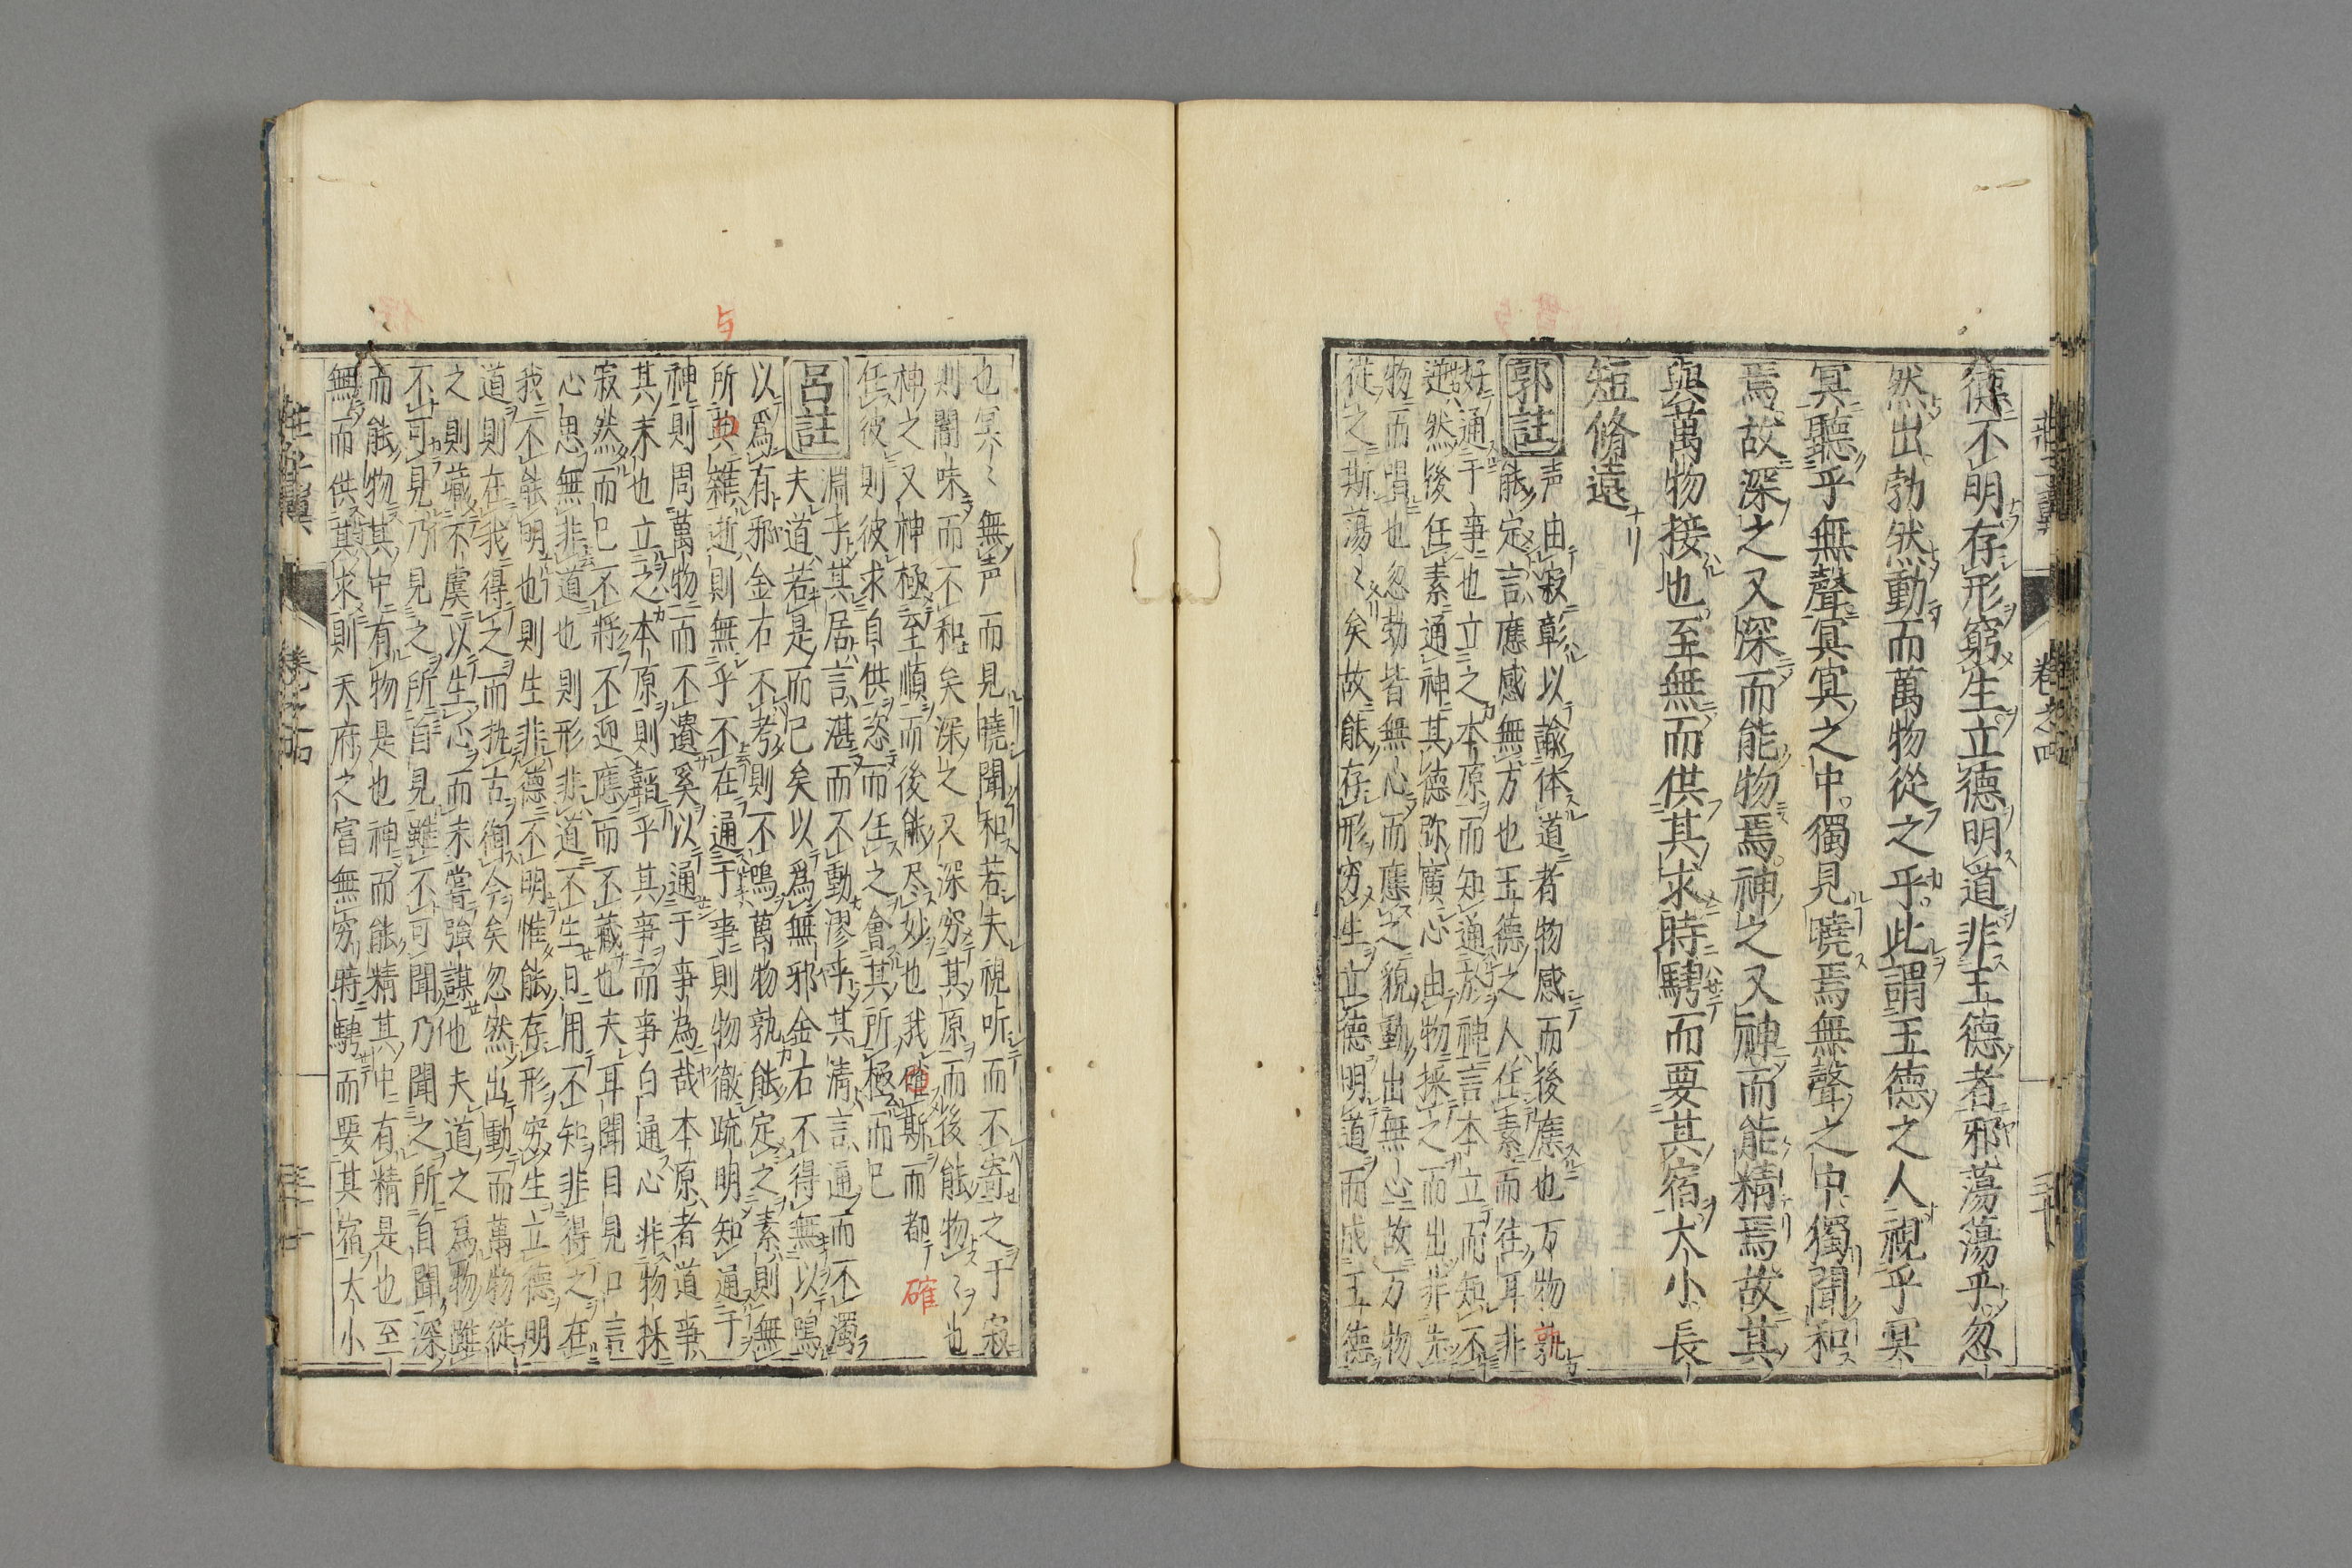 德不明存形窮生立德明道非王德者邪蕩蕩乎忽
然出勃然動而萬物從之乎此謂王德之人視乎冥
冥聽乎無聲冥冥之中獨見曉焉無聲之中獨聞和
焉故深之又深而能物焉神之又神而能精焉故其
與萬物接也至無而供其求時騁而要其宿大小長
短脩遠ナリ
郭註
声由寂彰以諭体道者物感而後應也万物孰
能定言應感無方也王德之人任素而往耳非
好通于事也立之本原而知通於神言本立而知不
逆然後任素通神其德弥廣心由物採之而出非先
物而唱也忽勃皆無心而應之貌動出無心故万物
從之斯蕩〻矣故能存形穷生立德明道而成王德
也冥〻無声而見曉聞和若夫視听而不寄之于寂
則闇昧而不和矣深之又深穷其原而後能物〻也
神之又神極至順而後能尽妙也我確斯而都
確
任彼則彼求自供恣而任之會其所極而已
呂註
淵乎其居言湛而不動漻乎其清言通而不濁
夫道若是而已矣以為無邪金石不得無以鳴
以為有邪金石不考則不鳴萬物孰能定之素則無
与
所與雜逝則無乎不在通于事則物徹疏明知通于
神則周萬物而不遺奚以通于事為哉本原者道事
其末也立之本原則韜乎其事而事自通心非物採
寂然而已不將不迎應而不藏也夫耳聞目見口言
心思無非道也則形非道不生日用不知非得之在
我不能明也則生非德不明惟能存形穷生立德明
道則在我得之而執古御今矣忽然出動而萬物從
之則藏不虞以生心而未嘗強謀也夫道之為物雖
不可見乃見之所自見雖不可聞乃聞之所自聞深
而能物其中有物是也神而能精其中有精是也至
無而供其求則天府之富無穷時騁而要其宿大小